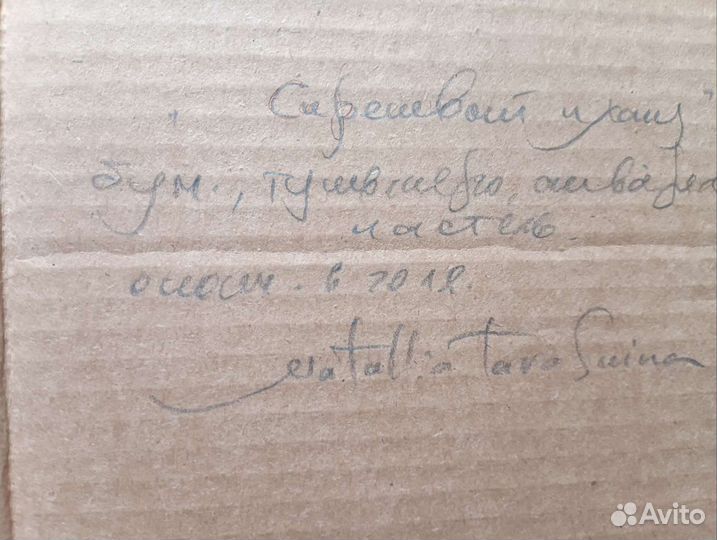 "Сиреневый и хаки"
бум., тушь перо, акварель
пастель
оконч. в 2012.
Natallia Tarasuina
Avito